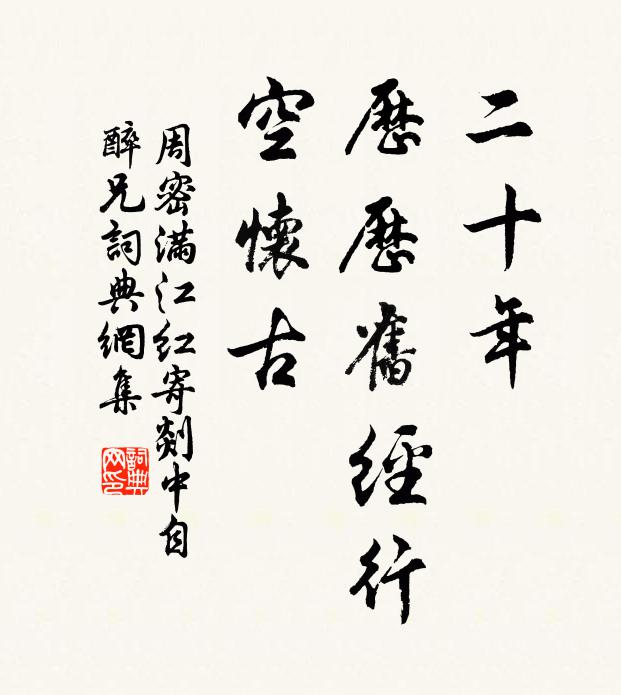 二十年
歷歷舊經行
空懷古
周密滿江紅寄剡中自
醉兄詞典網集
詞典
网印